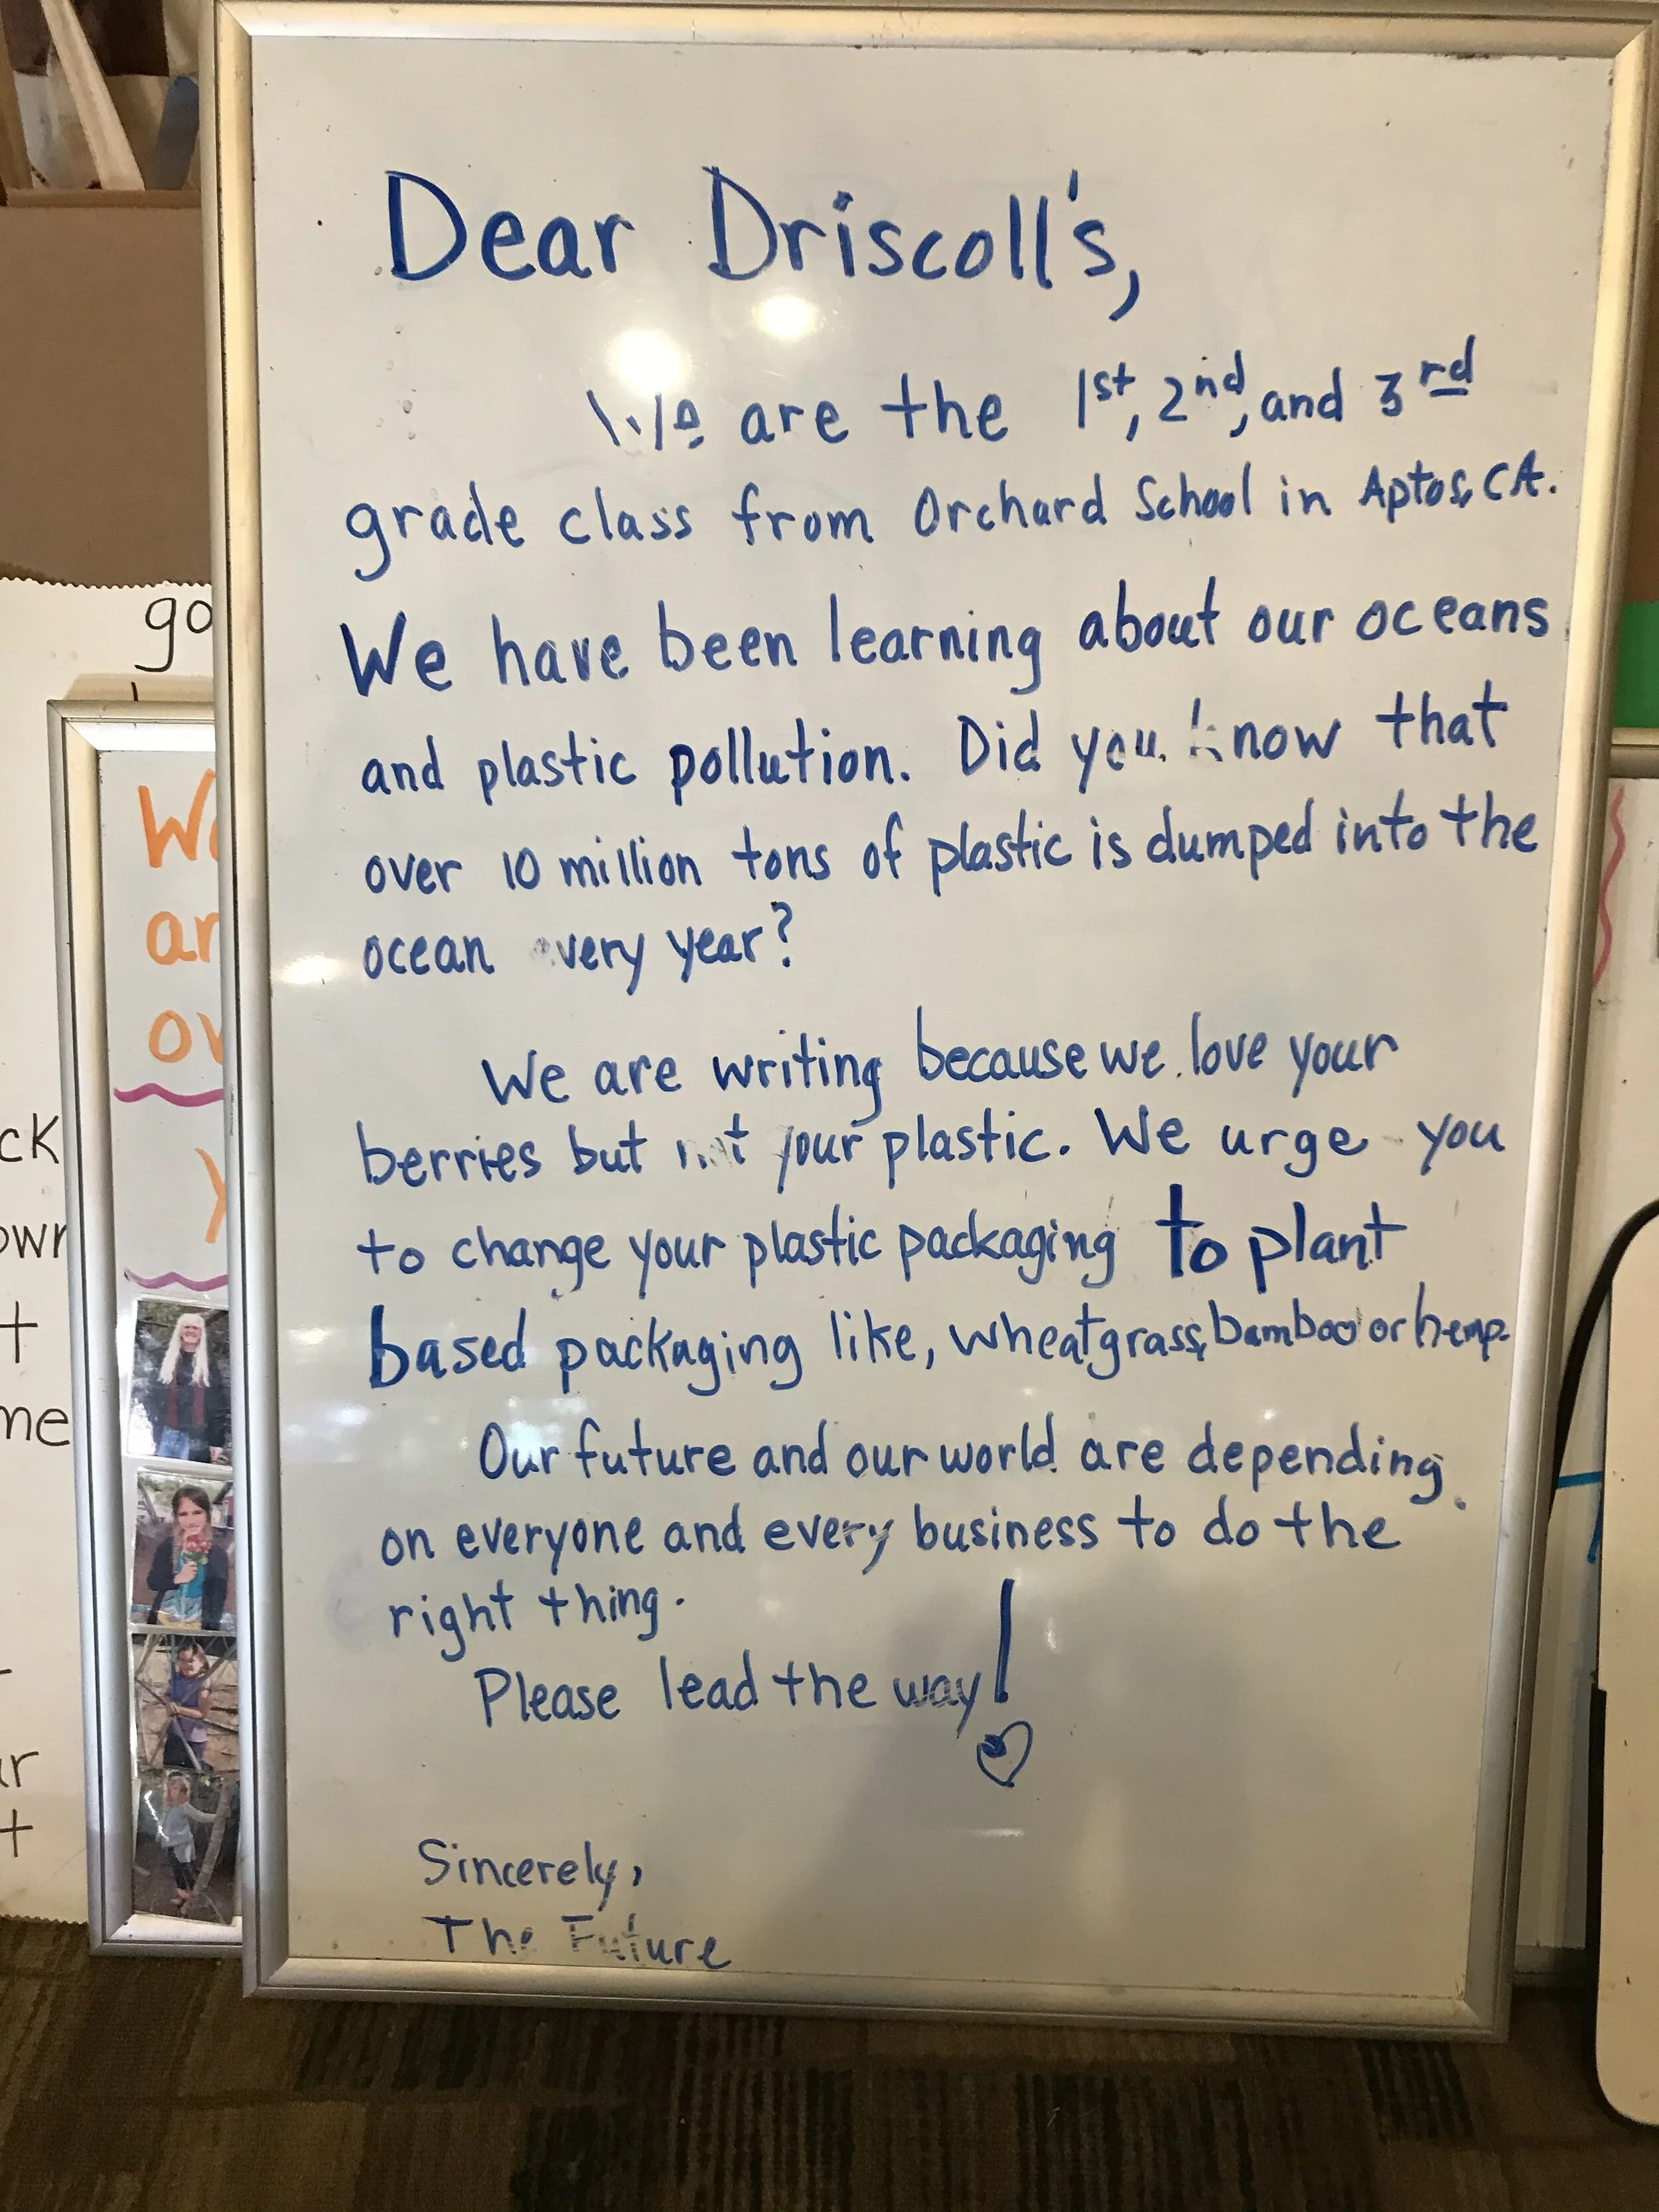 Dear Driscoll's,
We are the 1st, 2nd, and 3rd
grade class from Orchard School in Aptos, CA.
We have been learning about our oceans
and plastic pollution. Did you know that
over 10 million tons of plastic is dumped into the
ocean every year?
We are writing because we love your
berries but not your plastic. We urge you
to change your plastic packaging to plant
based packaging like, wheatgrass, bamboo or hemp.
Our future and our world are depending
on everyone and every business to do the
right thing.
Please lead the way!
Sincerely,
The Future
go
ck
own
t
me
r
t
W
ar
ov
y